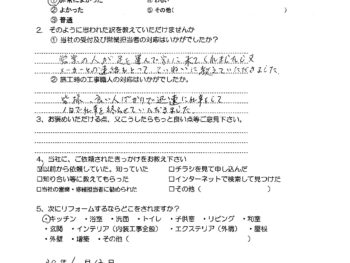 ② よかった ⑤ その他(
③ 普通
2. そのように思われた訳を教えていただけませんか
① 当社の受付及び営業担当者の対応はいかがでしたか?
営業の人が足を運んで
メーカーとの連絡もとって、ていねいに教えていただきました
② 施工時の工事職人の対応はいかがでしたか。
皆様、良い人ばかりで迅速に
1日で
3、お褒めいただける点、又こうしたらもっと良い点等ご意見下さい。
4、当社に、ご依頼されたきっかけをお教え下さい
☑以前から依頼していた。知っていた □チラシを見て申し込んだ
□知り合い等に教えてもらった □インターネットで検索して見つけた
□当社の営業・修繕担当者に勧められた □その他(　　)
5、次にリフォームするならどこをされますか?
・キッチン ・浴室 ・洗面 ・トイレ ・子供室 ・リビング ・和室
・玄関 ・インテリア(内装工事全般) ・エクステリア(外構) ・屋根
・外壁 ・増築 ・その他(　　)